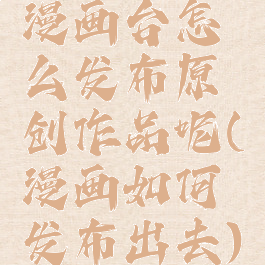 漫画台怎
么发布原
创作品呢(
漫画如何
发布出去)